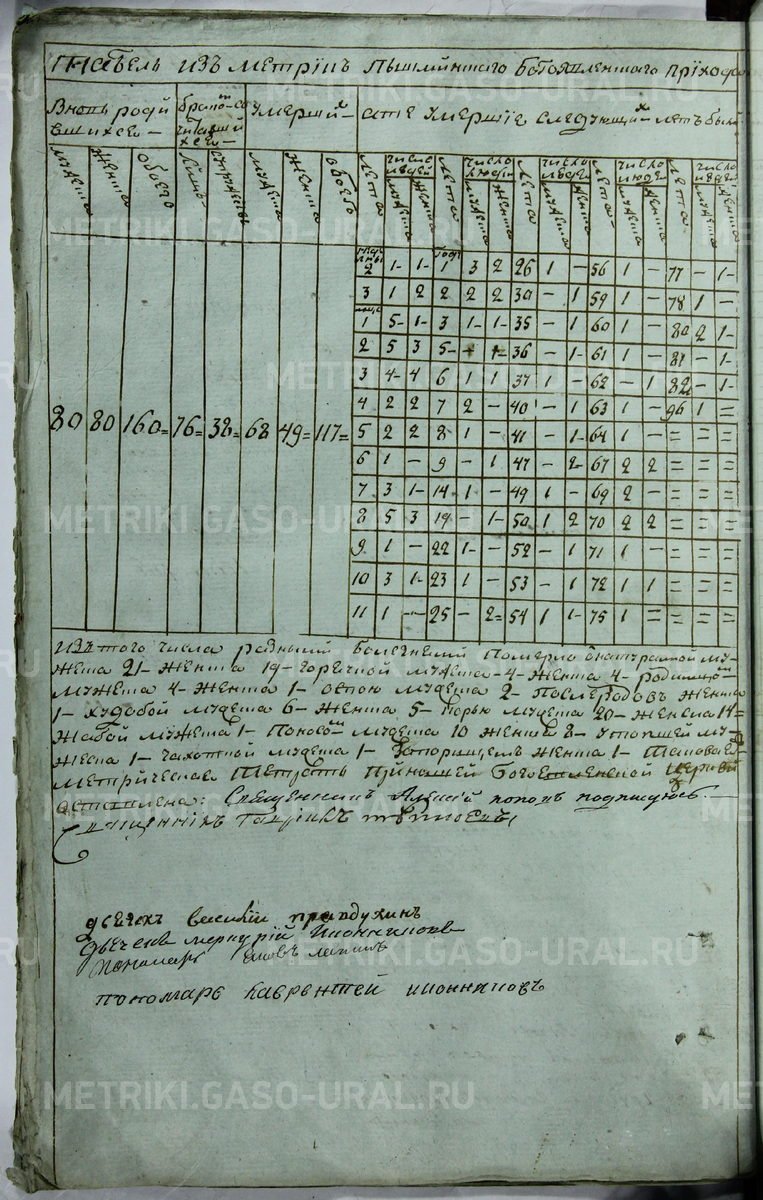 Табель изъ метрикъ Пышминскаго Богоявленскаго прихода
Вновь роди Брако со Умерших А те Умершие следующих летъ были
вшихся четавшихся
мужеска женска обоего лицъ супружествъ мужеска женска обоего лета число людей лета число людей лета число людей лета число людей лета число людей
мужеска женска мужеска женска мужеска женска мужеска женска мужеска женска
недели годы
2 1 - 1 - 1 3 2 26 1 - 56 1 - 77 - 1 -
3 1 2 2 2 2 30 - 1 59 1 - 78 1 -
месяцы
1 5 - 1 - 3 1 - 1 - 35 - 1 60 1 - 80 2 1 -
2 5 3 5 - 1 - 36 - 1 - 61 1 - 81 - 1
3 4 - 4 6 1 1 37 1 - 62 - 1 82 - 1 -
80 80 160 = 76 = 38 = 68 49 = 117 =
4 2 2 7 2 - 40 - 1 63 1 - 96 1 =
5 2 2 8 1 - 41 - 1 - 64 1 - = = =
6 1 - 9 - 1 47 - 2 - 67 2 2 = = =
7 3 1 - 14 1 - 49 1 - 69 2 - = = =
8 5 3 19 1 - 50 1 2 70 2 2 = = =
9 1 - 22 1 - - 52 - 1 71 1 - = = =
10 3 1 - 23 1 - 53 - 1 72 1 1 = = =
11 1 - - 25 - 2 = 54 1 1 - 75 1 = = = =
Изъ того числа разными болезнями померло натуралной му-
жеска 21 - женска 19 - горячной мужеска - 4 - женска 4 - родимцомъ
мужеска 4 - женска 1 - оспою мужеска 2 - после родовъ женска
1 - худобой мужеска 6 - женска 5 - корью мужеска 20 - женска 14 =
жабой мужеска 1 - поносомъ мужеска 10 женска 2 - утопшей му-
жеска 1 - чахоткой мужеска 1 - женска 1 - Таковая
метрическая тетрать при нашей Богоявленской церкви
оставлена: Священникъ Алексий Поповъ подписуюсь.
Священникъ
дьячекъ василий
Дьячекъ меркурий Иоакимовъ
Пономарь
Пономарь Лаврентей Иоаккимовъ
METRIKI.GASO-URAL.RU